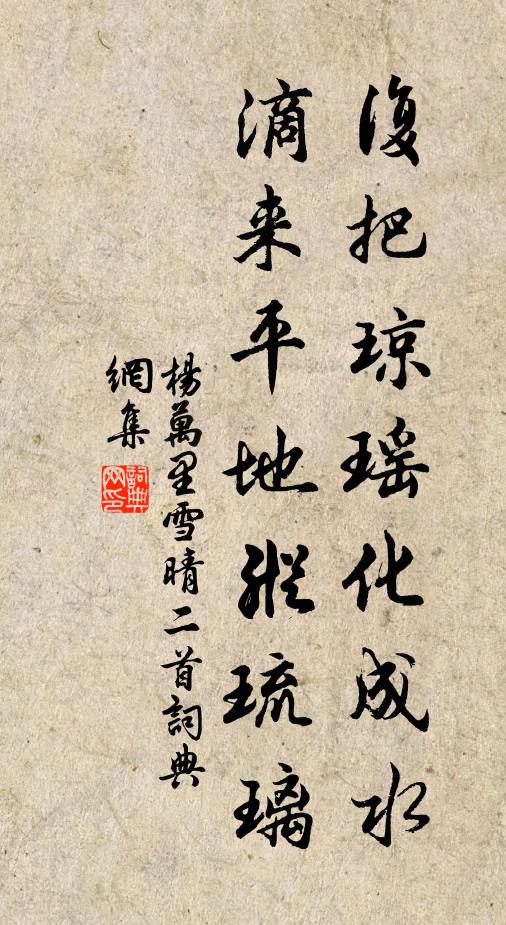 復把琼瑶化成水
滴来平地縱琉璃
楊萬里雪晴二首詞典
網集
詞典
网印